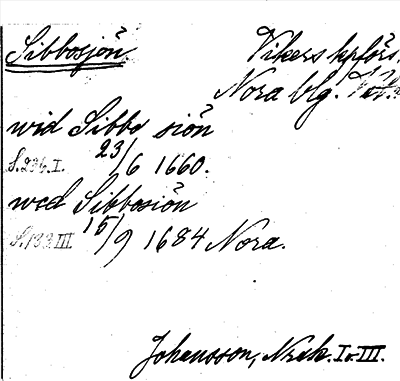 Sibbosjön Vikers kpförs.
Nora blg.
wid Sibbo siön
S. 236. I. 23/6 1660.
wed Sibbosiön
S. 133 III 15/9 1684 Nora.
Johansson, Norask. I o. III.